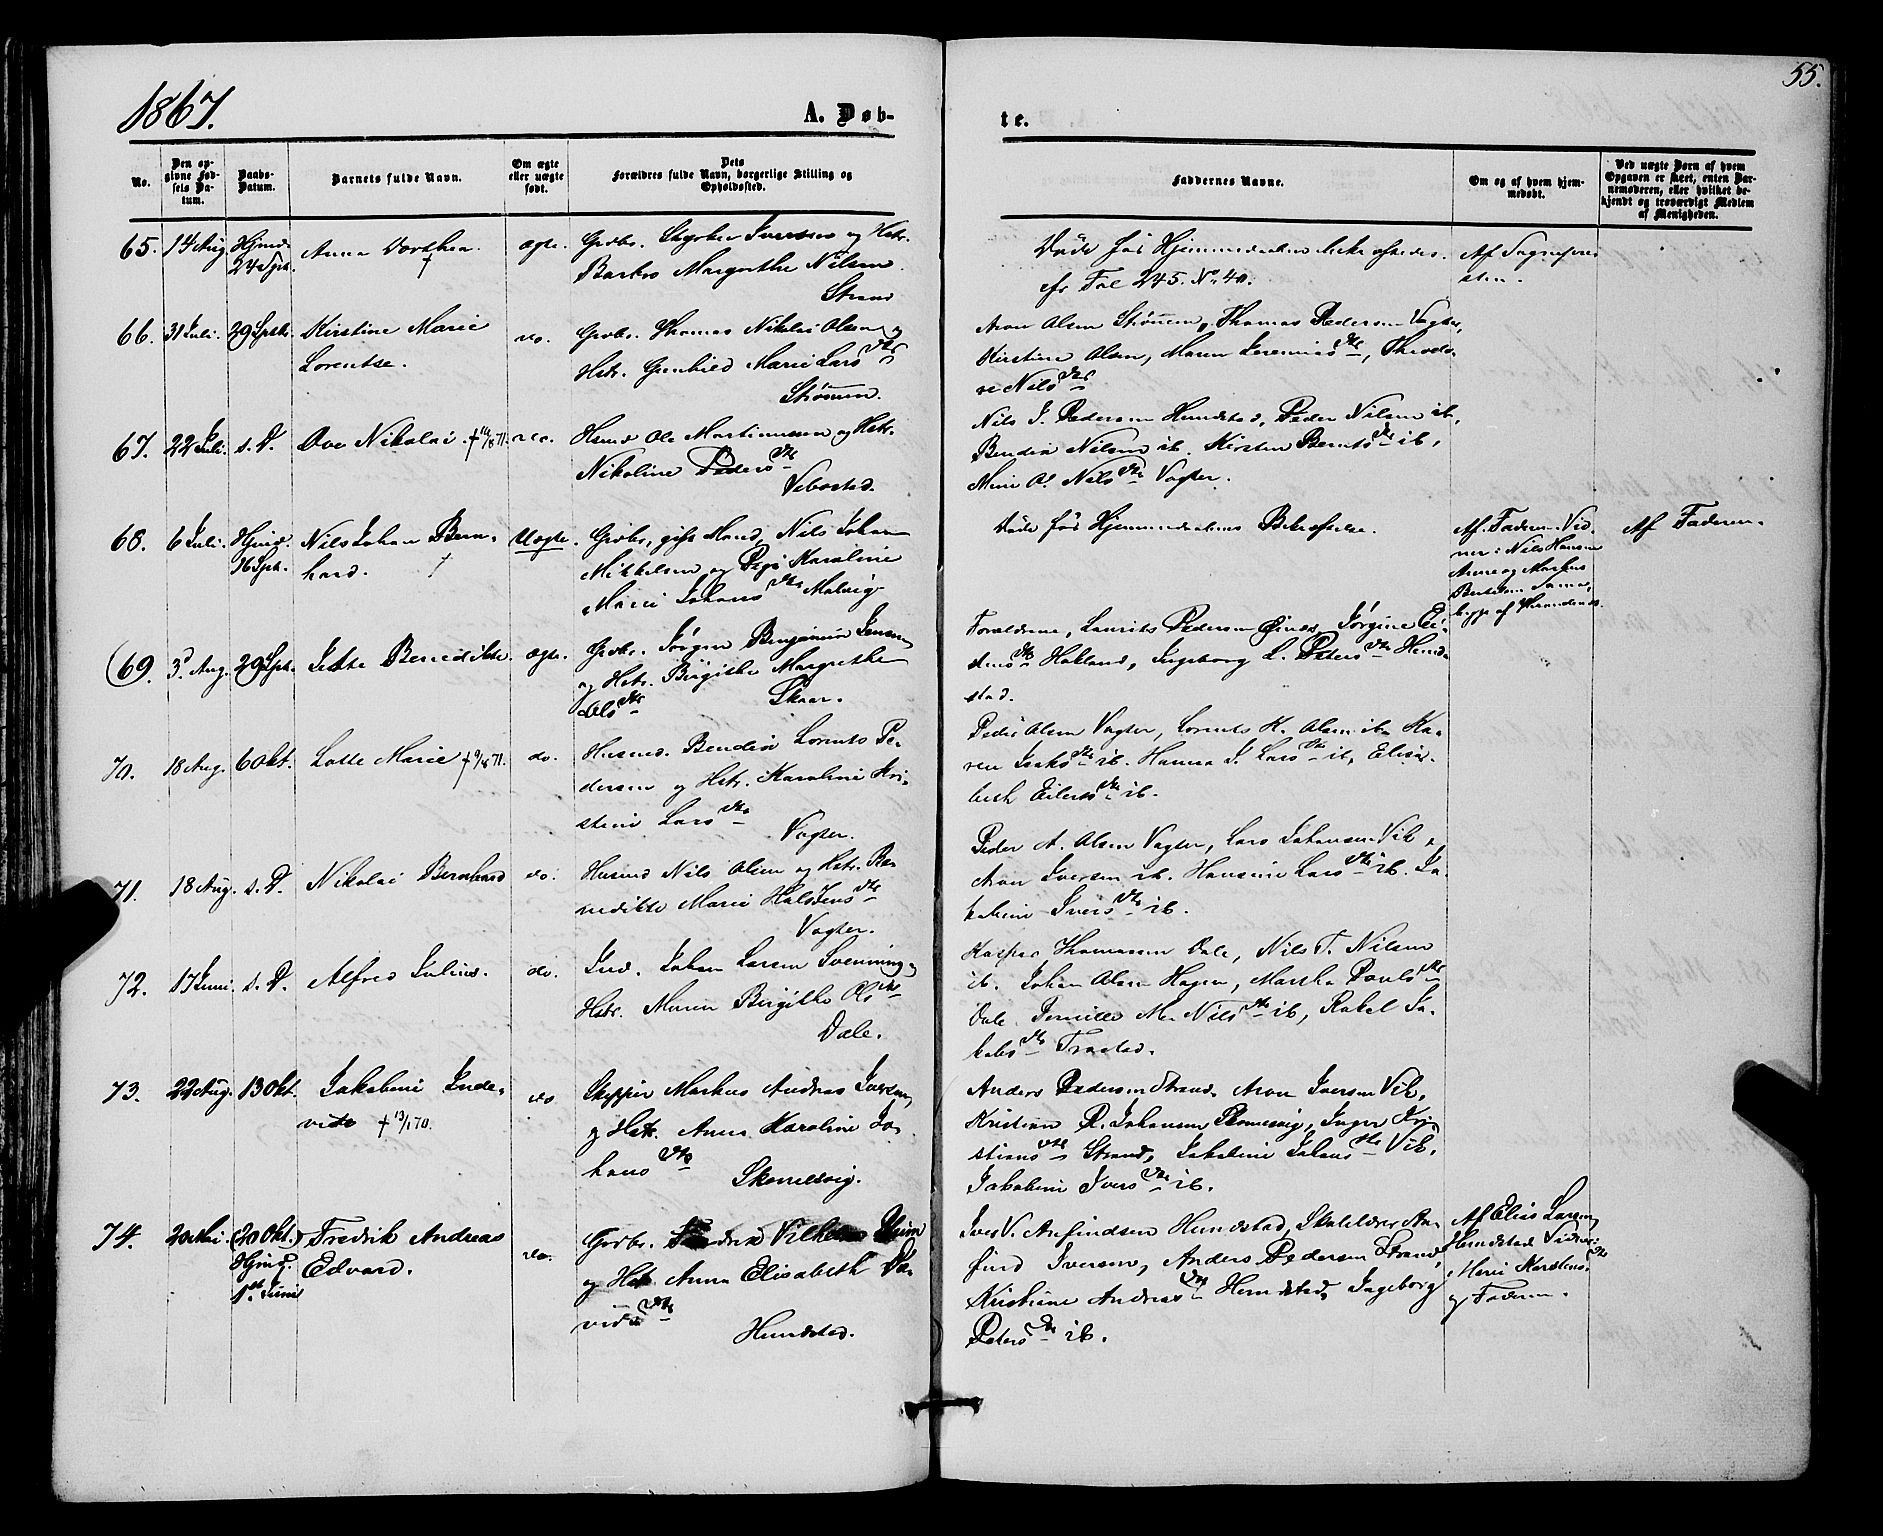 1867.
A. Døb-
te.
55.
No.
Den op-
givne Fød-
sels Da-
tum.
Daabs-
Datum.
Barnets fulde Navn.
Om ægte
eller uægte
født.
Dets
Forældres fulde Navn, borgerlige Stilling og
Opholdssted.
Faddernes Navne.
Om og af hvem hjem-
medøbt.
Ved uægte Barn af hvem
Opgaven er skeet, enten Bar-
nemoderen, eller hvilket be-
kjendt og troværdigt Medlem
af Menigheden.
65. 14 Aug. Hjmd. 24 Spt.
Anna Dorthea. †
ægte.
Grdbr. Iversen og Hstr.
Margrethe Nilsen
Strand
Døde før Hjemmedaaben
cfr Fol 245. No. 40.
66. 31 Juli. 29 Sptb.
Kirstine Marie
Lorentse.
do.
Grdbr. Thomas Nikolai Olsen og
Hstr. Gunhild Marie Larsdtr
Strømmen.
Aron Olsen Strømmen, Thomas Pedersen Vagter,
Kirstine Olsen, Maren Jeremiasdtr,
Nilsdtr
67. 22 Juli. s. D.
Ove Nikolai. †
do.
Husmd Ole Martinussen og Hstr.
Nikoline Pedersdtr
Vebostad.
Nils J. Pedersen Hemdstad, Peder Nilsen ib,
Bendix Nilsen ib. Kirsten Berntsdtr ib,
Nilsdtr Vagter.
68. 6 Juli. Hjmd. 16 Spt.
Nils Johan Bern-
hard. †
Uægte.
Grdbr, gift Mand, Nils Johan
Mikkelsen og Pige Karoline
Marie Johansdtr Malvig
Døde før Hjemmedaabens Bekræftelse.
Af Faderen. Vid-
ner: Nils Hansen
og Markus
Bertelsen
Af Faderen.
(69. 3 Aug. 29 Spt.
Jette Benedikte.
ægte.
Grdbr. Jørgen Benjamin Jensen
og Hstr. Birgithe Margrethe
Olsdtr
Skaar.
Forældrene, Laurits Pedersen Øines, Jørgine Ei-
Hokland, Ingeborg L. Petersdtr Hemd-
stad.
70. 18 Aug. 6 Okt.
Lotte Marie †
do.
Husmd. Bendix Lorents Pe-
dersen og Hstr. Karoline Kri-
stine Larsdtr
Vagter.
Peder Olsen Vagter, Lorents H. Olsen ib. Ka-
ren Isaksdtr ib. Hanna J. Larsdtr ib, Elisa-
beth Eilertsdtr ib.
71. 18 Aug. s. D.
Nikolai Bernhard
do.
Husmd Nils Olsen og Hstr. Be-
nedikte Marie Halstensdtr
Vagter.
Peder A. Olsen Vagter, Lars Johansen Vik,
Aron Iversen ib. Hansine Larsdtr ib. Ja-
kobine Iversdtr ib.
72. 17 Juni. s. D.
Alfred Julius.
do.
Ind. Johan Larsen Svenning og
Hstr. Maren Birgithe Olsdtr
Dale.
Kasper Thomassen Dale, Nils T. Nilsen
ib. Johan Olsen Hagen, Martha Paulsdtr
Dale. Pernille M. Nilsdtr ib, Rakel Ja-
kobsdtr Trastad.
73. 22 Aug. 13 Okt.
Jakobine Inde-
vide † 13/1 70.
do
Skipper Markus Andreas Iversen
og Hstr. Anna Karoline Jo-
hansdtr
Skjevelsvig.
Anders Pedersen Strand, Aron Iversen Vik,
Kristian R. Johansen, Inger Kri-
stiansdtr Strand, Jakobine Johansdtr Vik,
Jakobine Iversdtr ib.
74. 20 Mai. (20 Okt.) Hjmd. 1st Juni
Fredrik Andreas
Edvard.
do.
Grdbr. Fredrik Vilhelm
og Hstr. Anna Elisabeth Da-
vidsdtr
Hemdstad.
Iver V. Anfindsen Hemdstad, Skolelærer An-
find Iversen, Anders Pedersen Strand,
Kristiane Andreasdtr Hemdstad, Ingeborg
Petersdtr ib.
Af Elias Larsen,
Hemdstad Vidner:
Marie Karstensdtr
og Faderen.